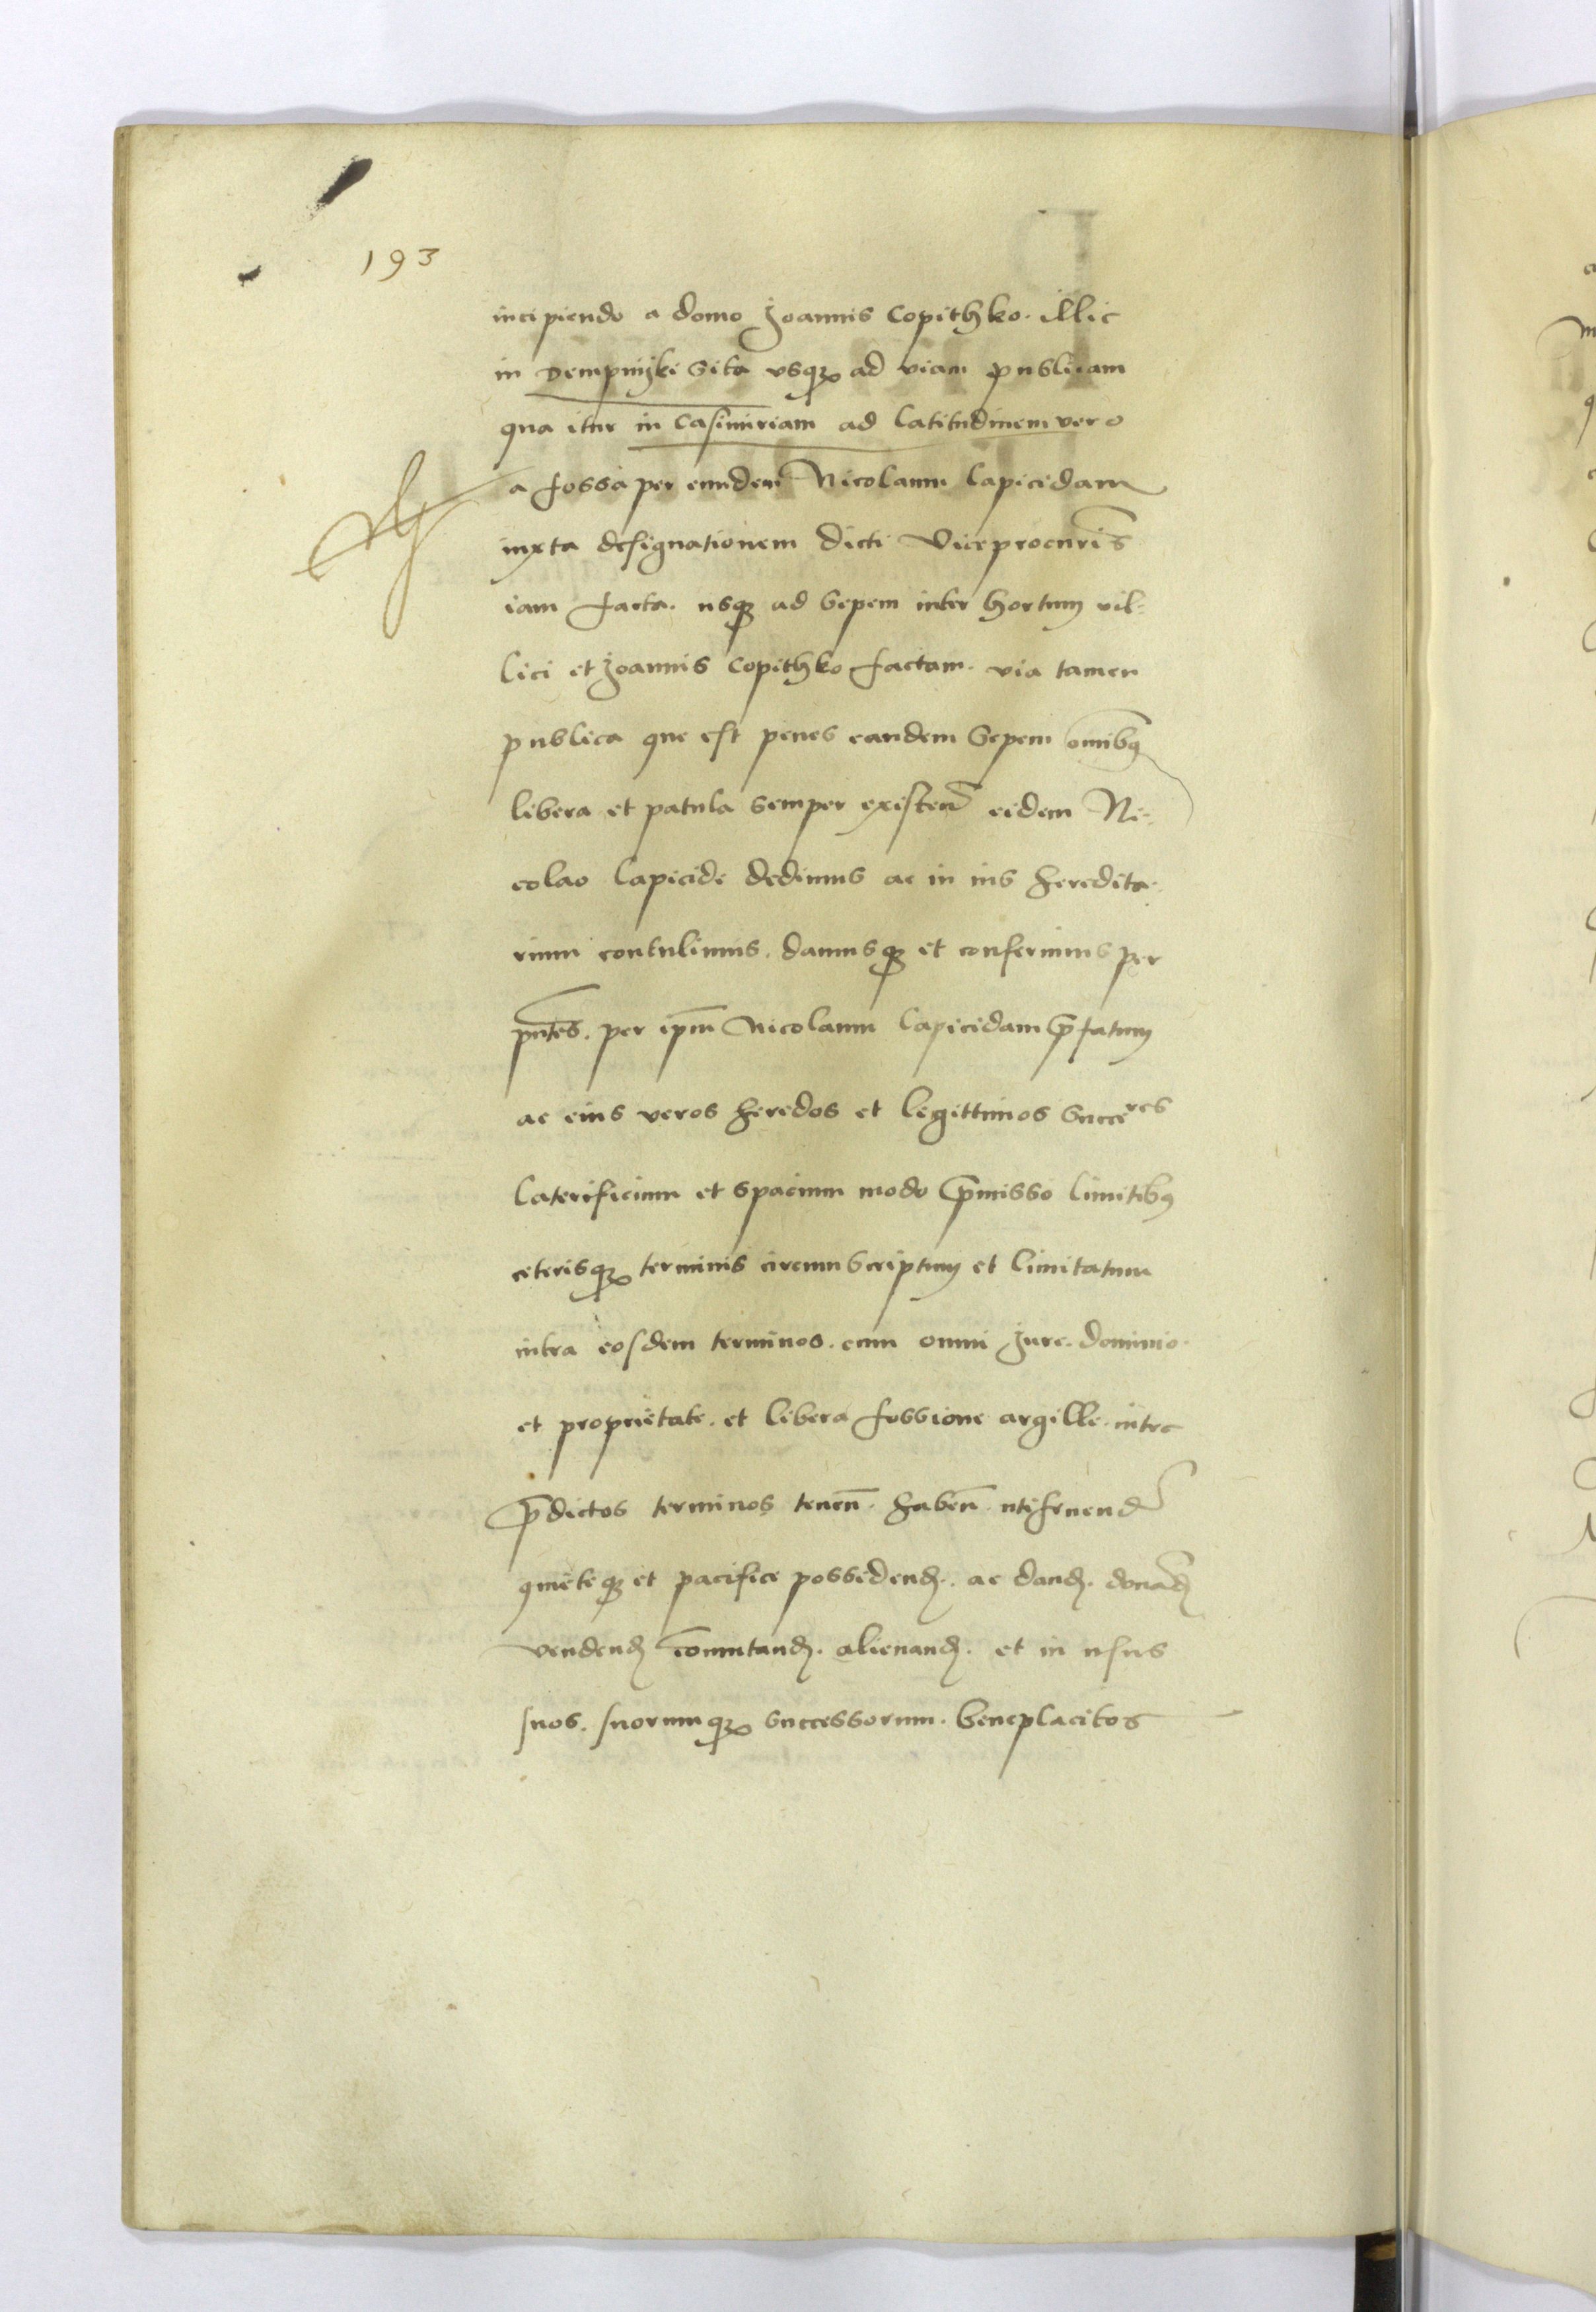 193
incipiendo a domo Joannis Copithko. illic
in Dempnijki sita usq3 ad viam publicam
qua itur in Casimiriam ad latitudinem vero
a fossa per eundem Nicolaum lapicidam
iuxta designationem dicti Viceprocuris̄
iam facta. usq3 ad sepem inter hortum vil=
lici et Joannis Copithko factam. via tamen
publica que est penes eandem sepem omībꝫ
libera et patula semper existen̄ eidem Ni=
colao lapicide dedimus ac in ius heredita=
rium contulimus. damusq3 et conferimus per
pn̄tes. per ipm̄ Nicolaum lapicidam p̄fatum
ac eius veros heredos et legittimos succeres
laterificium et spacium modo p̄misso limitibꝫ
ceterisq3 terminis circumscriptum et limitatum
intra eosdem terminos. cum omni Jure. dominio.
et proprietate. et libera fossione argille. intra
p̄dictos terminos tenen̄. haben̄. utifruend̄
quieteq3 et pacifice possidend̄. ac dand̄. donād̄
vendend̄ com̄utand̄. alienand̄. et in usus
suos. suorumq3 successorum. beneplacitos